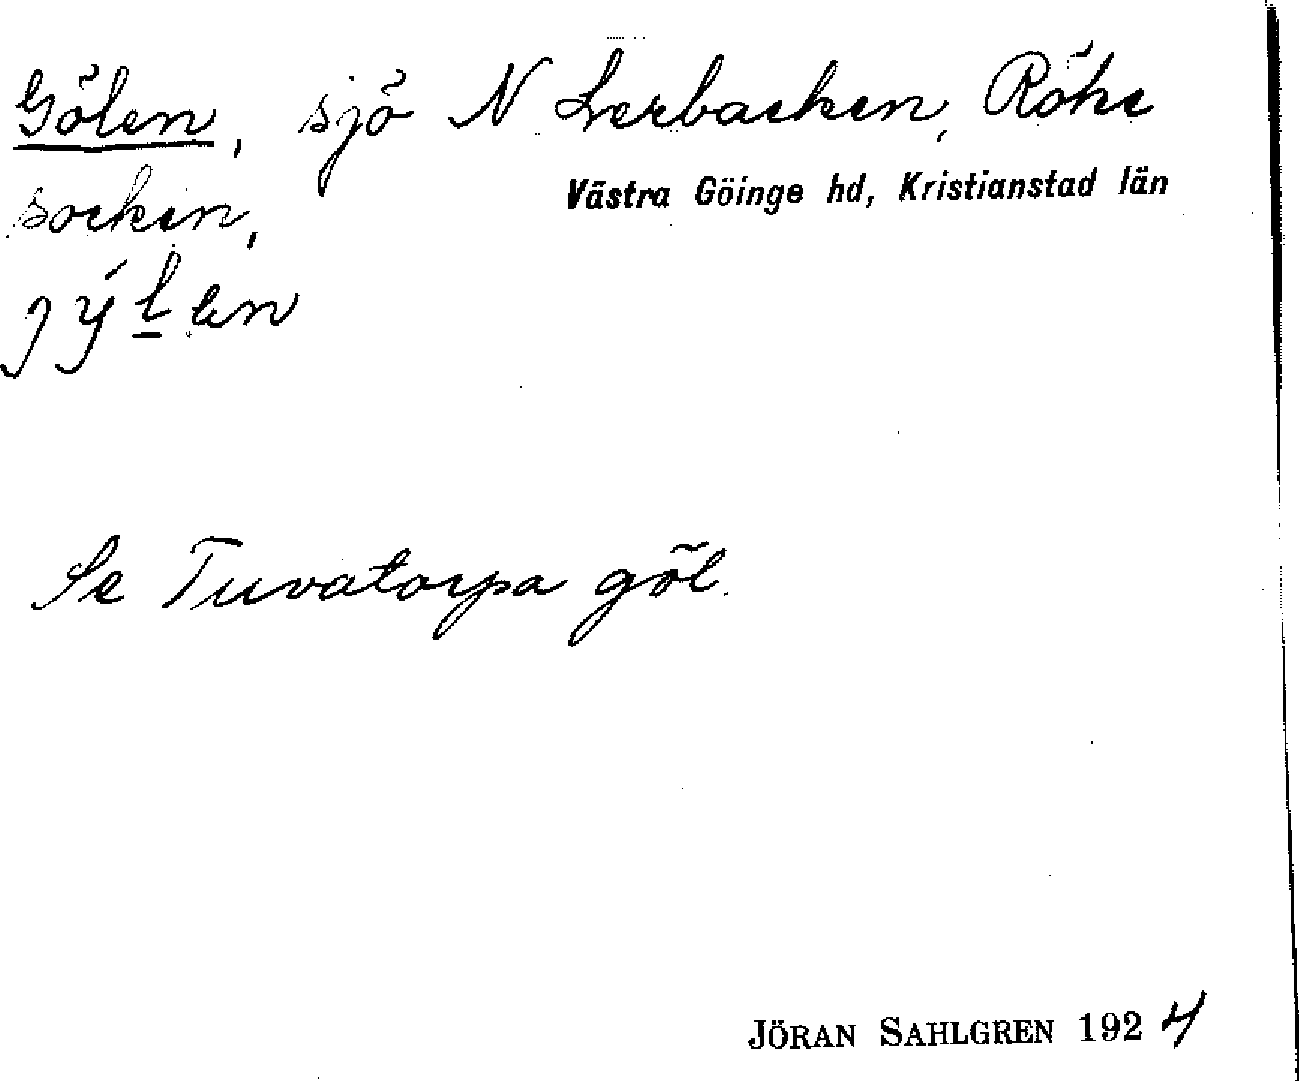 Gölen, sjö N Lerbacken, Röke
Västra Göinge hd, Kristianstad län
socken,
jýlen
Se Tuvatorpa göl.
JÖRAN SAHLGREN 1924